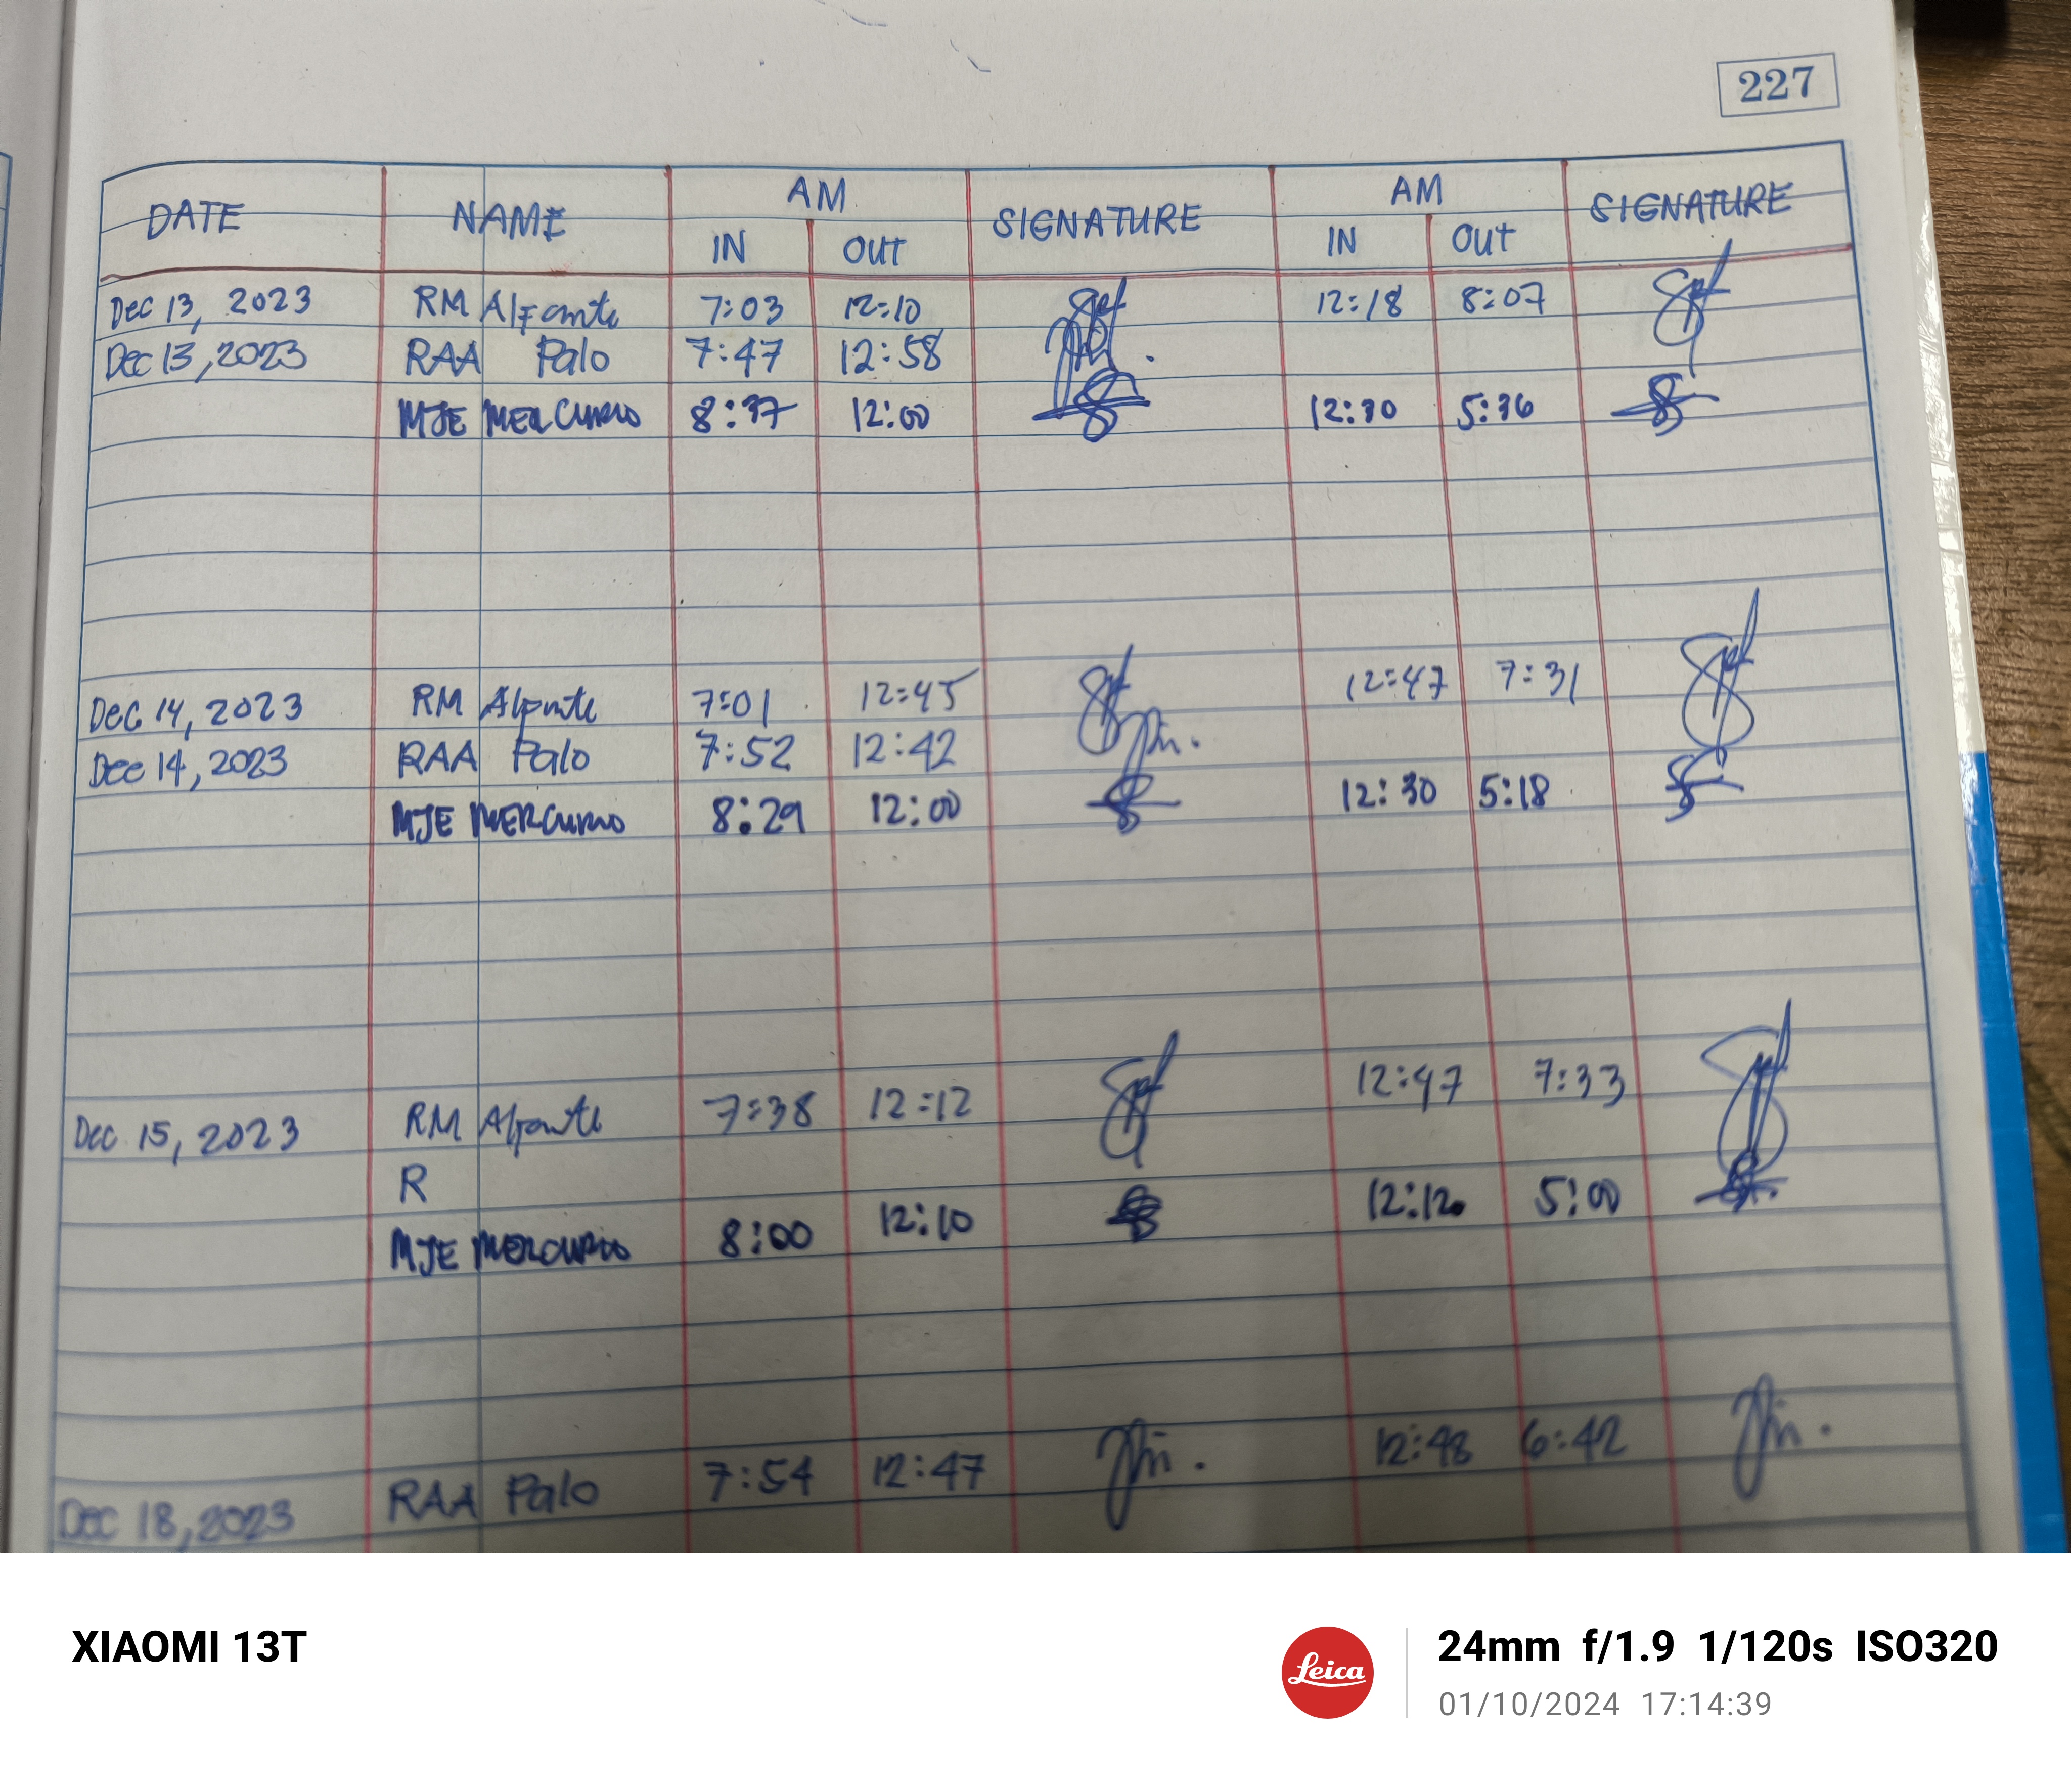 227
DATE NAME AM SIGNATURE AM SIGNATURE
IN OUT IN OUT
Dec 13, 2023 RM Alfante 7:03 12:10 12:18 8:07
Dec 13, 2023 RAA Palo 7:47 12:58
MJE MERCURIO 8:37 12:00 12:30 5:36
Dec 14, 2023 RM Alfante 7:01 12:45 12:47 7:31
Dec 14, 2023 RAA Palo 7:52 12:42
MJE MERCURIO 8:29 12:00 12:30 5:18
Dec 15, 2023 RM Alfante 7:38 12:12 12:47 7:33
R
MJE MERCURIO 8:00 12:10 12:12 5:00
Dec 18, 2023 RAA Palo 7:54 12:47 12:48 6:42
XIAOMI 13T
Leica
24mm f/1.9 1/120s ISO320
01/10/2024 17:14:39